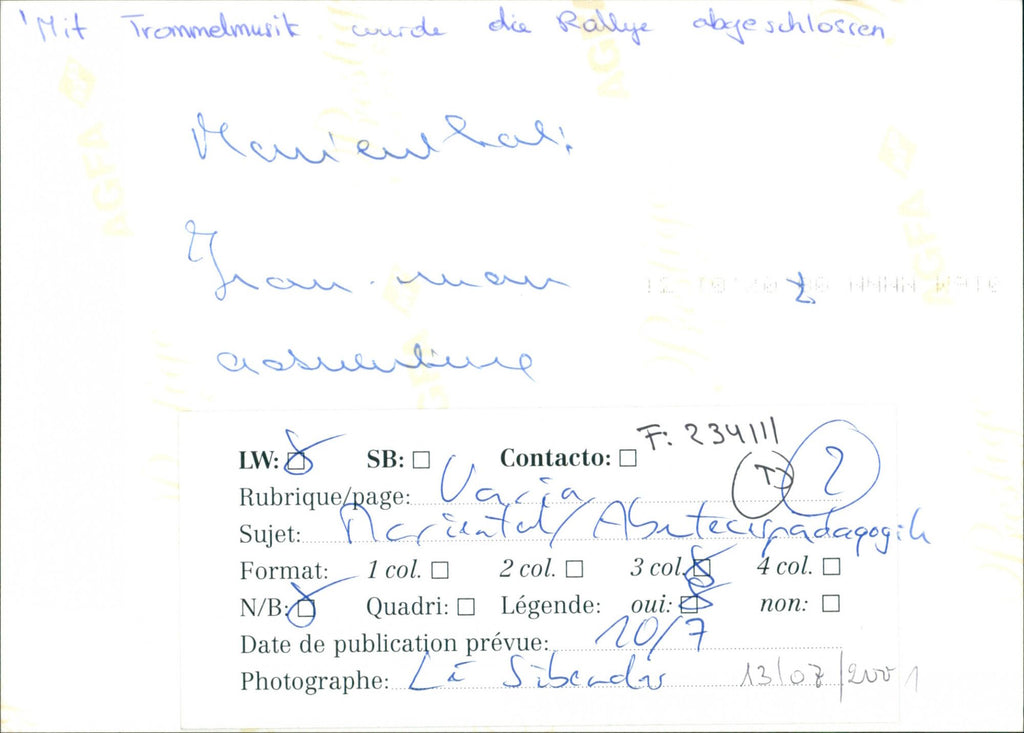 'Mit Trommelmusik wurde die Rallye abgeschlossen
Marienthal:
LW: SB: Contacto: F: 234111
Rubrique/page: Varia T 2
Sujet: Mariental/Abenteuerpädagogik
Format: 1 col. 2 col. 3 col. 4 col.
N/B: Quadri: Légende: oui: non:
Date de publication prévue: 10/7
Photographe: 13/07/2001
AGFA
AGFA
AGFA
AGFA